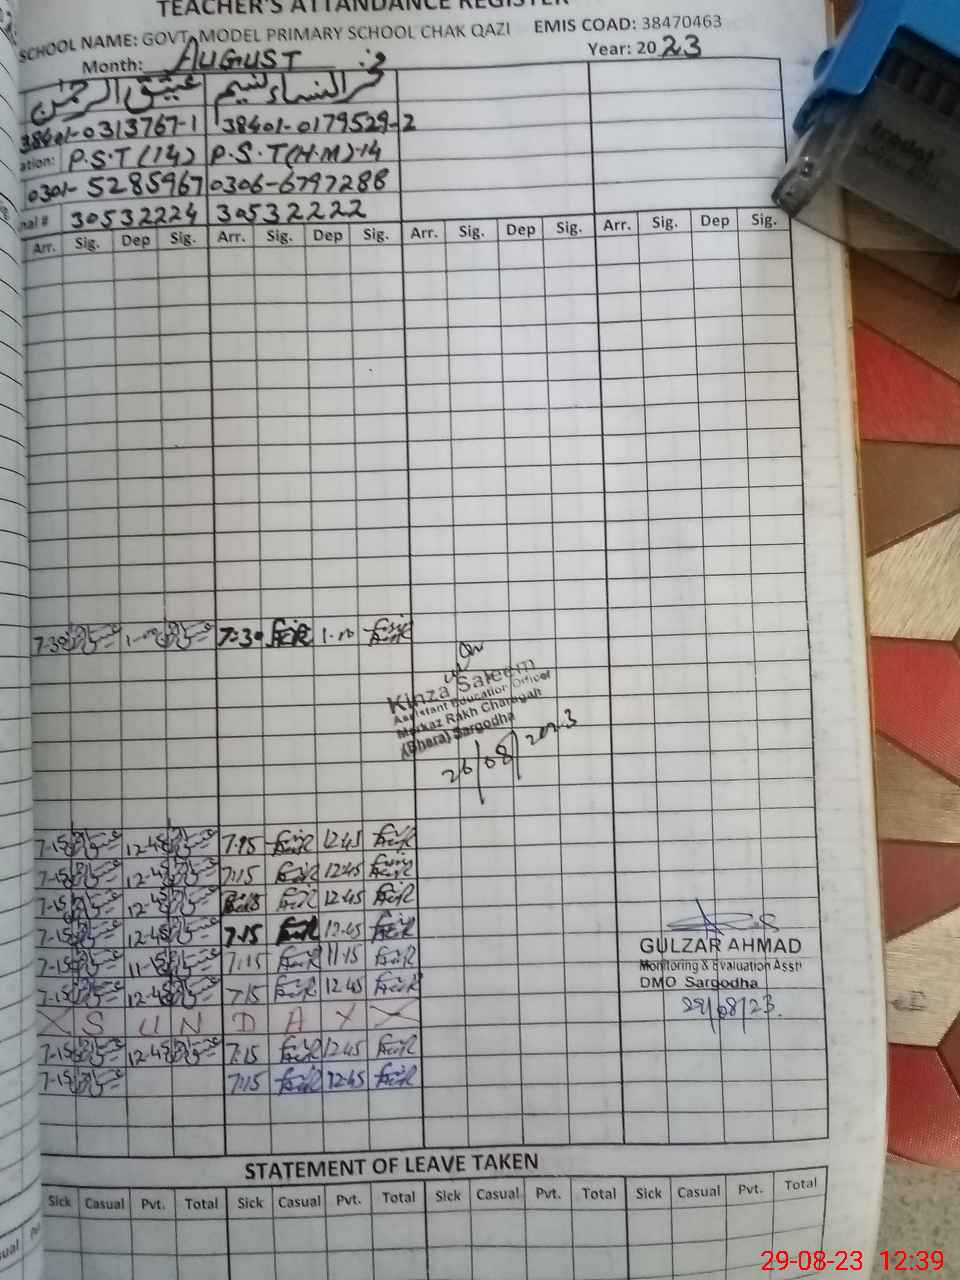 TEACHER'S ATTANDANCE REGISTER
SCHOOL NAME: GOVT. MODEL PRIMARY SCHOOL CHAK QAZI EMIS COAD: 38470463
Month: AUGUST Year: 2023
عتیق الرحمٰن فخر النساء نسیم
38401-0313767-1 38401-0179529-2
ation: P.S.T (14) P.S.T(H.M)-14
0301-5285967 0306-6797288
nal # 30532224 30532222
Arr. Sig. Dep Sig. Arr. Sig. Dep Sig. Arr. Sig. Dep Sig. Arr. Sig. Dep Sig.
7-30 1-00 7-30 1-00
Kinza Saleem
Assistant Education Officer
Markaz Rakh Charagah
(Bhera) Sargodha
26/08/2023
7-15 12-45 7-15 12-45
7-15 12-45 7-15 12-45
7-15 12-45 12-45
7-15 12-45 7-15 12-45
7-15 11-15 7-15 11-15
7-15 12-45 7-15 12-45
X S U N D A Y X
7-15 12-45 7-15 12-45
7-15 7-15 12-45
GULZAR AHMAD
Monitoring & Evaluation Asstt
DMO Sargodha
29/08/23.
STATEMENT OF LEAVE TAKEN
Sick Casual Pvt. Total Sick Casual Pvt. Total Sick Casual Pvt. Total Sick Casual Pvt. Total
29-08-23 12:39